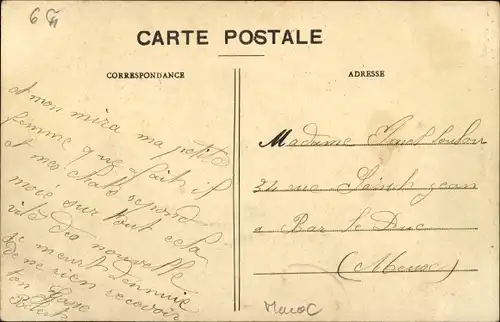 6
CARTE POSTALE
CORRESPONDANCE
ADRESSE
et mon mira ma petite
femme que fait il
et mes repond
moie sur tout cela
vite des nouvelle
je meurt d'ennuie
de ne rien recevoir
ton
Madame
34 rue Saint jean
a Bar le Duc
(Meuse)
Maroc